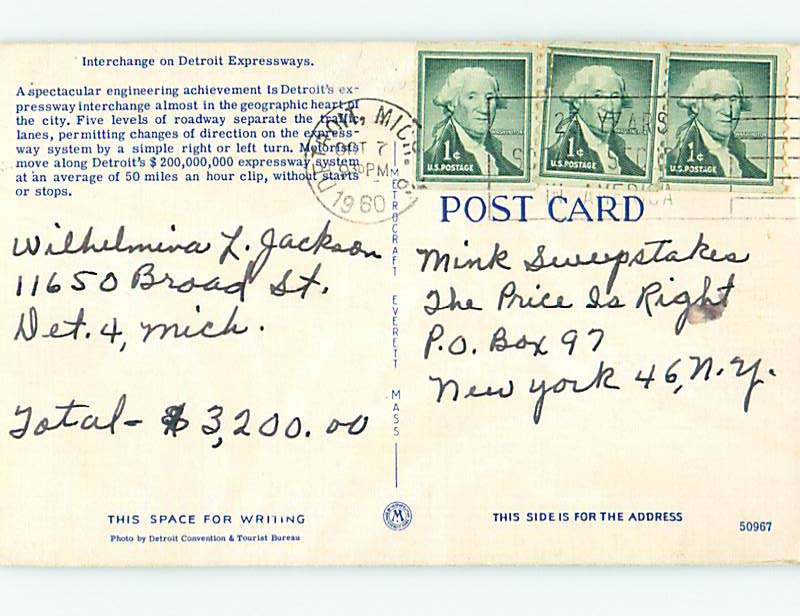 Interchange on Detroit Expressways.
A spectacular engineering achievement is Detroit's ex-
pressway interchange almost in the geographic heart of
the city. Five levels of roadway separate the traffic
lanes, permitting changes of direction on the express-
way system by a simple right or left turn. Motorists
move along Detroit's $200,000,000 expressway system
at an average of 50 miles an hour clip, without starts
or stops.
Wilhelmina L. Jackson
11650 Broad St.
Det. 4, Mich.
Total - $3,200.00
THIS SPACE FOR WRITING
Photo by Detroit Convention & Tourist Bureau
METROCRAFT EVERETT MASS
M
MICH.
OCT 7
PM
1960
WASHINGTON
1¢
U.S. POSTAGE
WASHINGTON
1¢
U.S. POSTAGE
WASHINGTON
1¢
U.S. POSTAGE
YEARS
AMERICA
POST CARD
Mink Sweepstakes
The Price Is Right
P.O. Box 97
New York 46, N.Y.
THIS SIDE IS FOR THE ADDRESS
50967